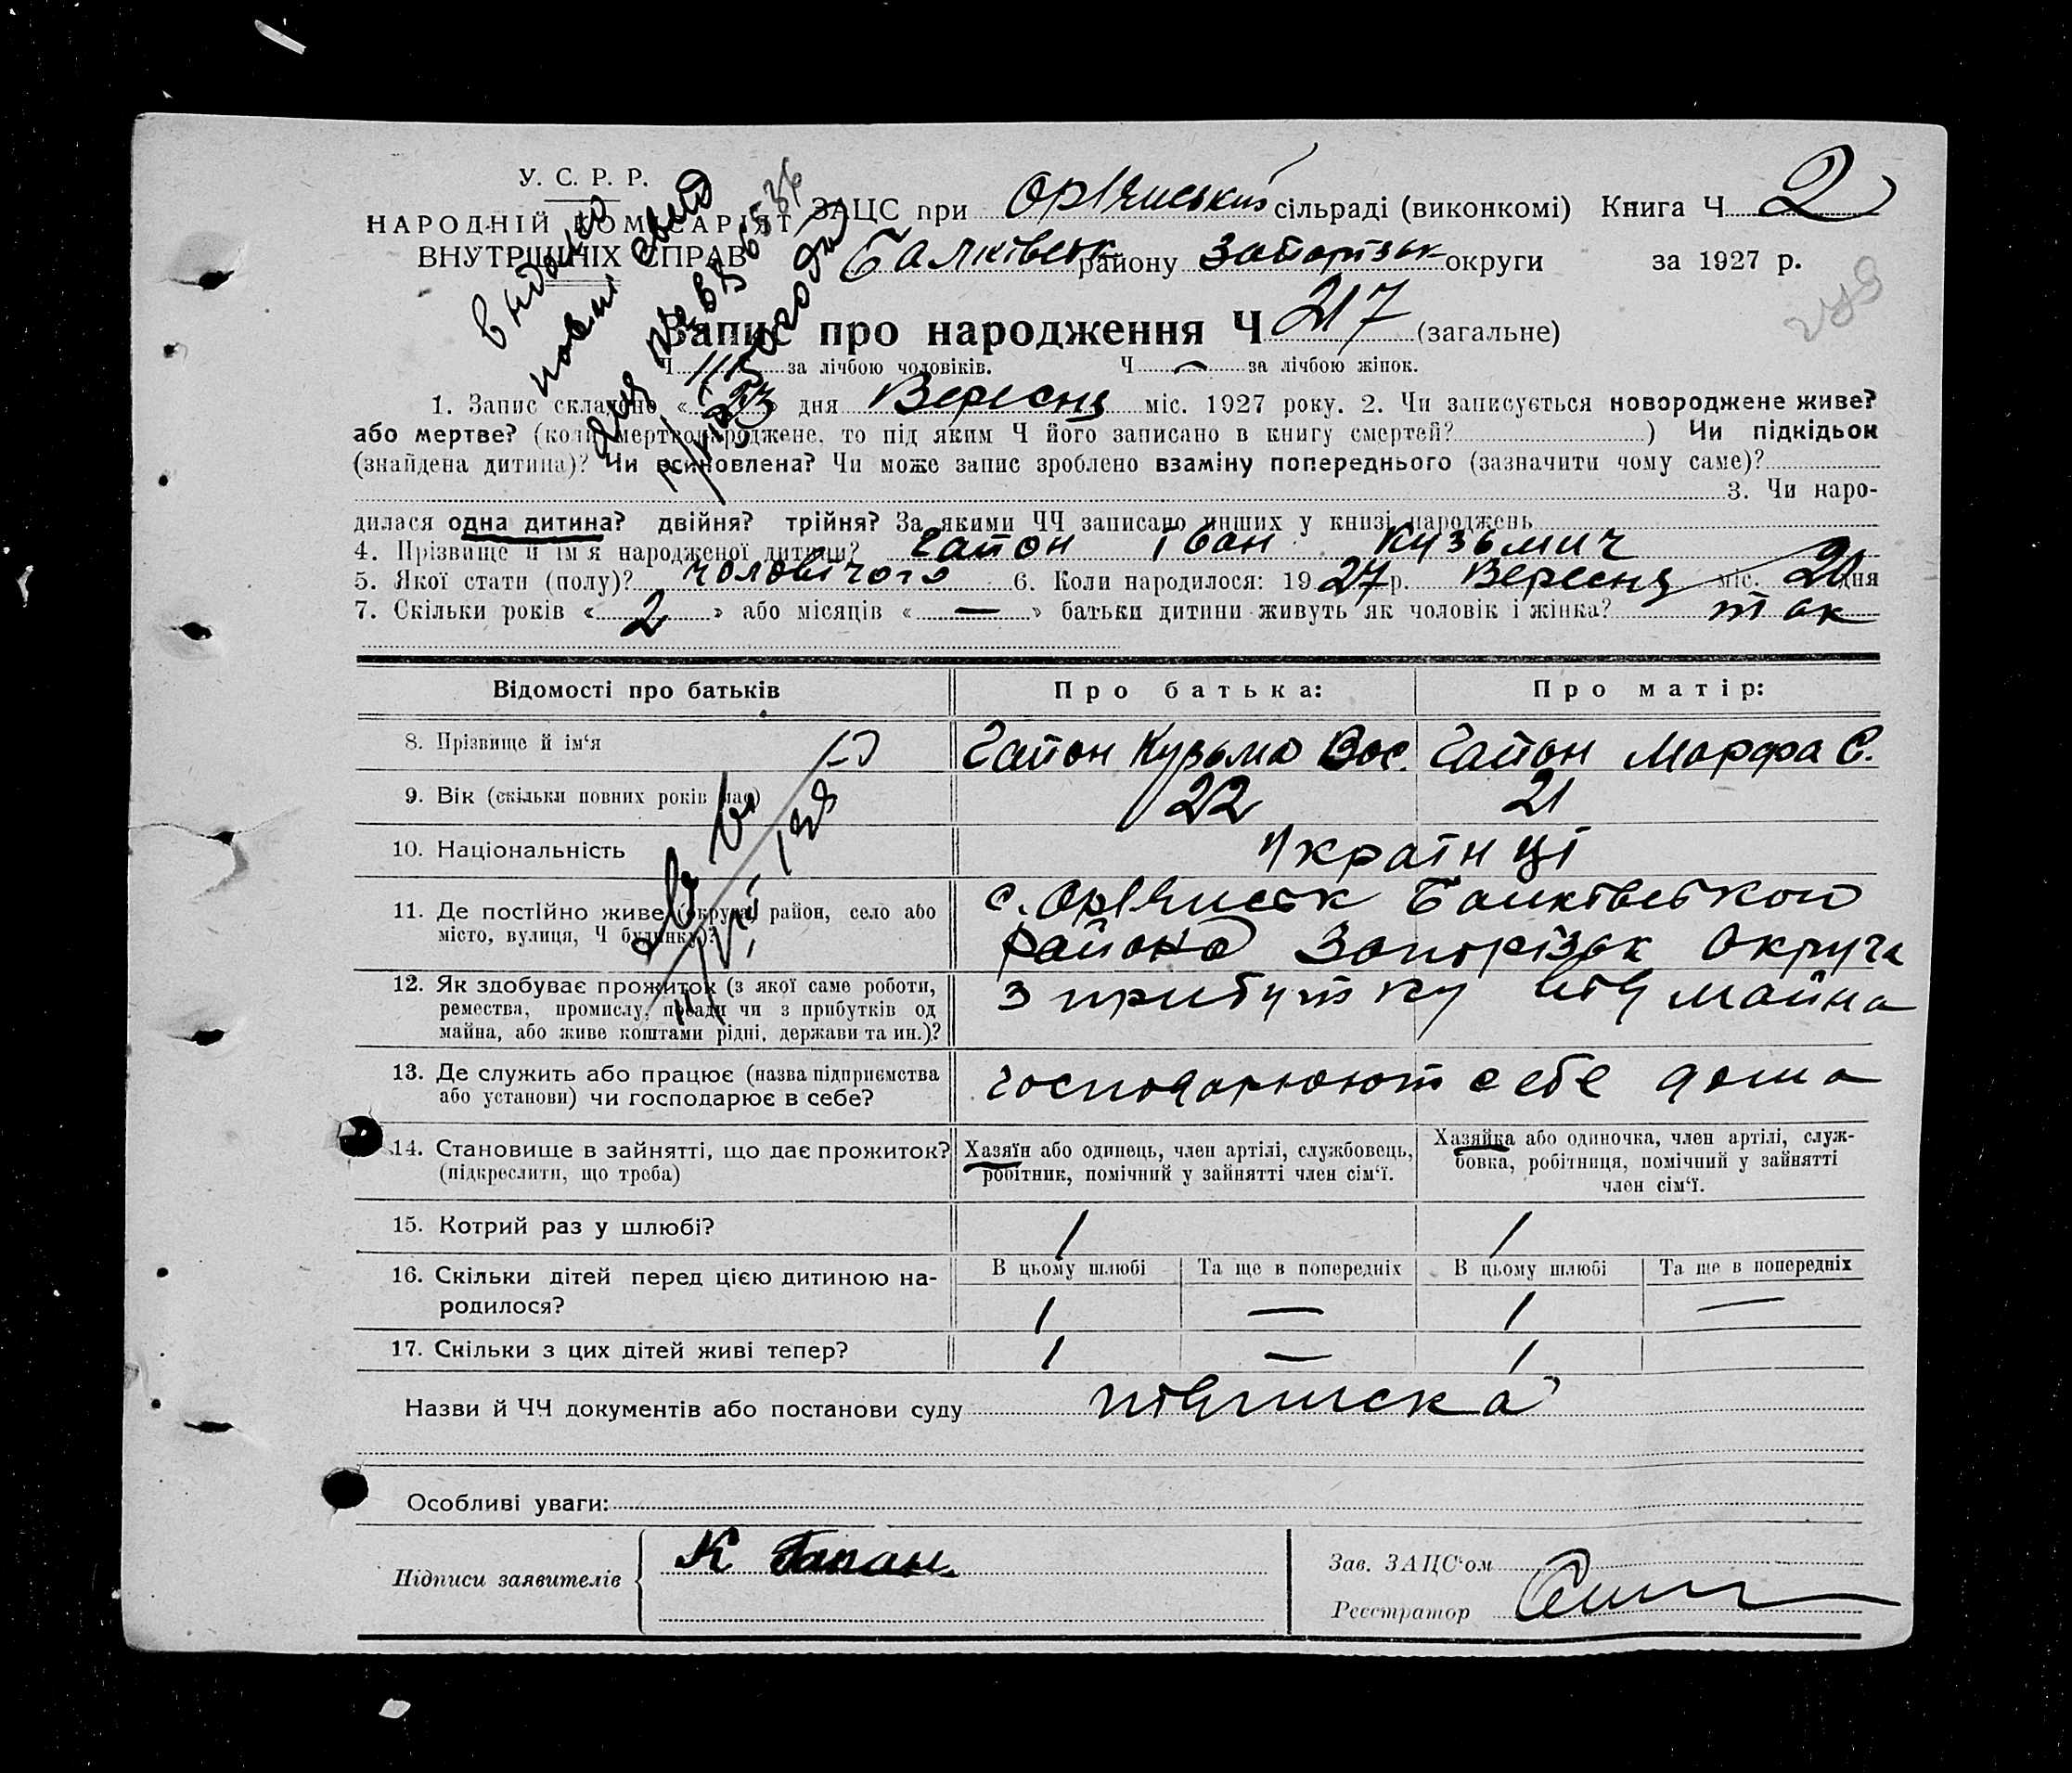 У. С. Р. Р.
НАРОДНІЙ КОМІСАРІЯТ
ВНУТРІШНІХ СПРАВ
ЗАЦС при Орlянський сільраді (виконкомі) Книга Ч 2
Балківськ району Запорізьк округи за 1927 р.
видано
повт. свид
Запис про народження Ч 217 (загальне)
Ч 115 за лічбою чоловіків. Ч — за лічбою жінок.
1. Запис складено « 23 » дня Вересня міс. 1927 року. 2. Чи записується новороджене живе?
або мертве? (коли мертвонароджене, то під яким Ч його записано в книгу смертей? ) Чи підкідьок
(знайдена дитина)? Чи всиновлена? Чи може запис зроблено взаміну попереднього (зазначити чому саме)?
3. Чи наро-
дилася одна дитина? двійня? трійня? За якими ЧЧ записано инших у книзі народжень
4. Прізвище й ім'я народженої дитини? Гапон Іван Кузьмич
5. Якої стати (полу)? чоловічого 6. Коли народилося: 1927 р. Вересня міс. 20 дня
7. Скільки років « 2 » або місяців « — » батьки дитини живуть як чоловік і жінка? так
Відомості про батьків Про батька: Про матір:
8. Прізвище й ім'я Гапон Кузьма Вас. Гапон Марфа С.
9. Вік (скільки повних років має) 22 21
10. Національність Українці
11. Де постійно живе (округа, район, село або
місто, вулиця, Ч будинку)?
района Запорізьк Округа
12. Як здобуває прожиток (з якої саме роботи,
ремества, промислу, посади чи з прибутків од
майна, або живе коштами рідні, держави та ин.)?
з прибутку від майна
13. Де служить або працює (назва підприємства
або установи) чи господарює в себе?
господарюют себе дома
14. Становище в зайнятті, що дає прожиток?
(підкреслити, що треба)
Хазяїн або одинець, член артілі, службовець,
робітник, помічний у зайнятті член сім'ї.
Хазяйка або одиночка, член артілі, служ-
бовка, робітниця, помічний у зайнятті
член сім'ї.
15. Котрий раз у шлюбі? 1 1
16. Скільки дітей перед цією дитиною на-
родилося?
В цьому шлюбі Та ще в попередніх В цьому шлюбі Та ще в попередніх
1 — 1 —
17. Скільки з цих дітей живі тепер? 1 — 1
Назви й ЧЧ документів або постанови суду підписка
Особливі уваги:
Підписи заявителів К Гапан.
Зав. ЗАЦС'ом
Реєстратор